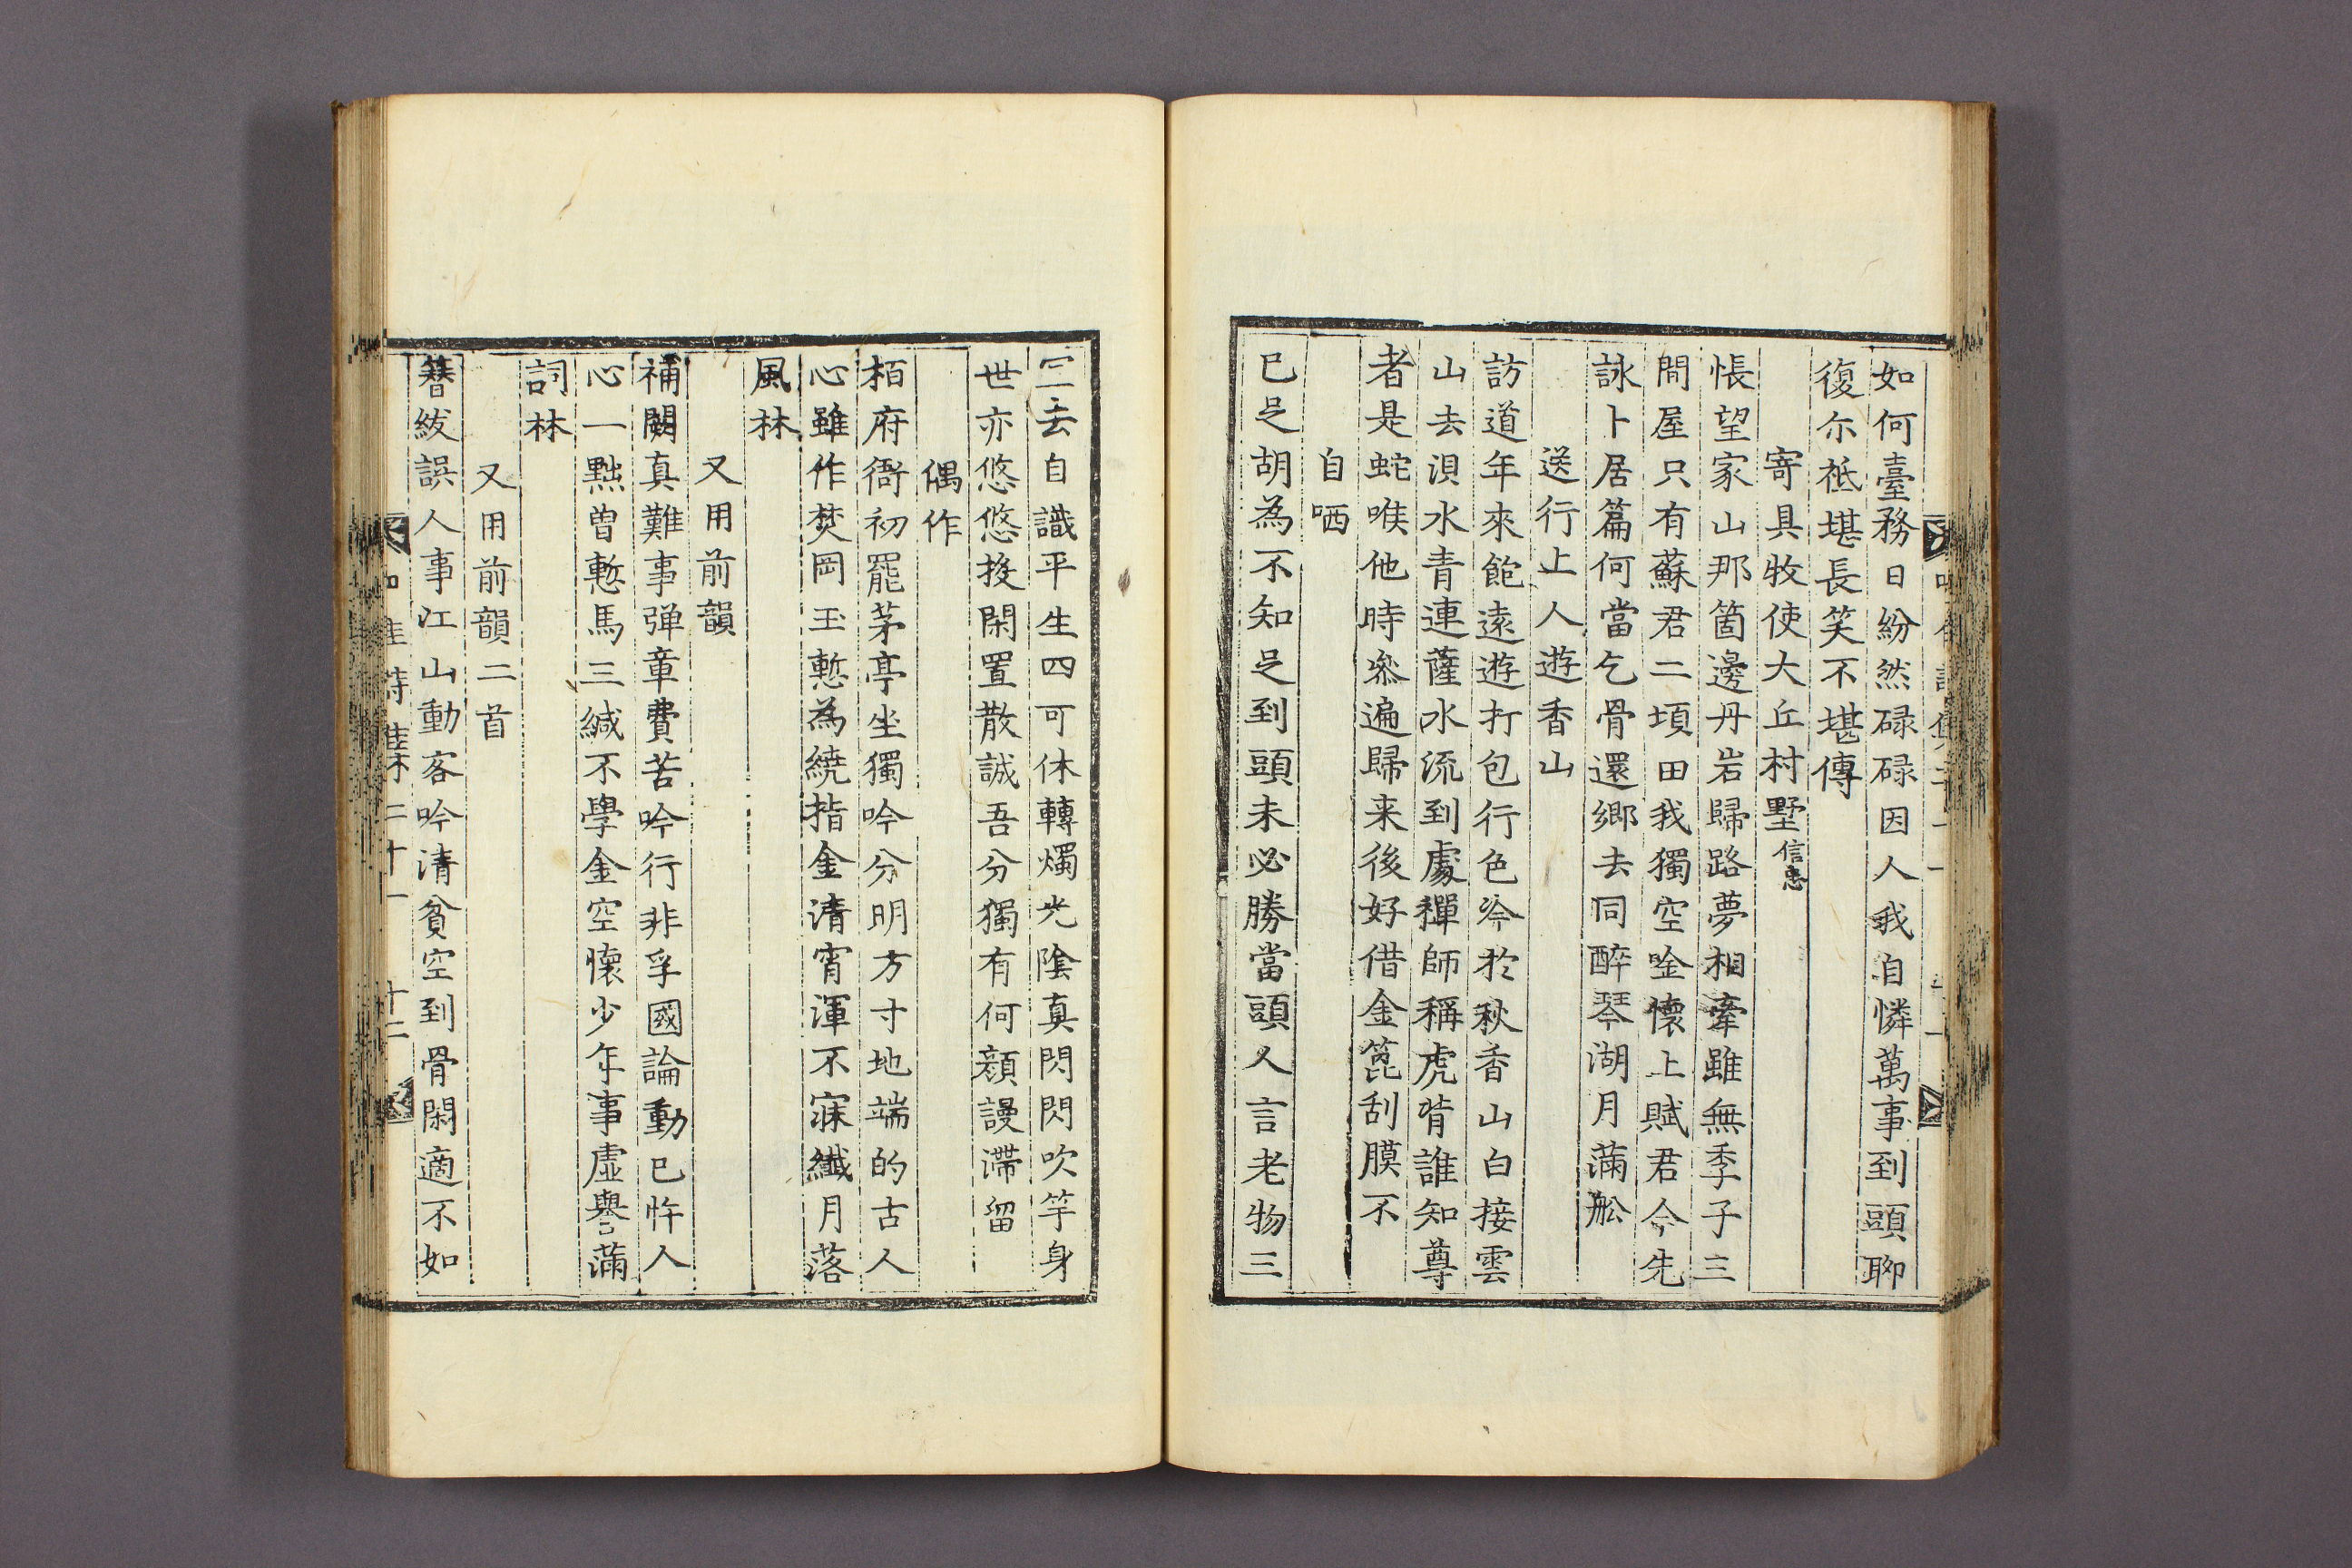 如何臺務日紛然碌碌因人我自憐萬事到頭聊
復尓祗堪長笑不堪傳
寄具牧使大丘村墅信忠
悵望家山那箇邊丹岩歸路夢相牽雖無季子三
間屋只有蘇君二頃田我獨空唫懷上賦君今先
詠卜居篇何當乞骨還鄉去同醉琴湖月滿舩
送行上人遊香山
訪道年來飽遠遊打包行色冷於秋香山白接雲
山去浿水青連薩水流到處禪師稱虎背誰知尊
者是蛇喉他時叅遍歸来後好借金篦刮膜不
自哂
已足胡為不知足到頭未必勝當頭人言老物三
冝去自識平生四可休轉燭光陰真閃閃吹竽身
世亦悠悠投閑置散誠吾分獨有何顔謾滯留
偶作
栢府衙初罷茅亭坐獨吟分明方寸地端的古人
心雖作焚岡玉慙為繞指金清宵渾不寐纖月落
風林
又用前韻
補闕真難事弹章費苦吟行非孚國論動已忤人
心一㸃曽慙馬三緘不學金空懷少年事虛譽滿
詞林
又用前韻二首
簪紱誤人事江山動客吟清貧空到骨閑適不如
詩集二十一 十二